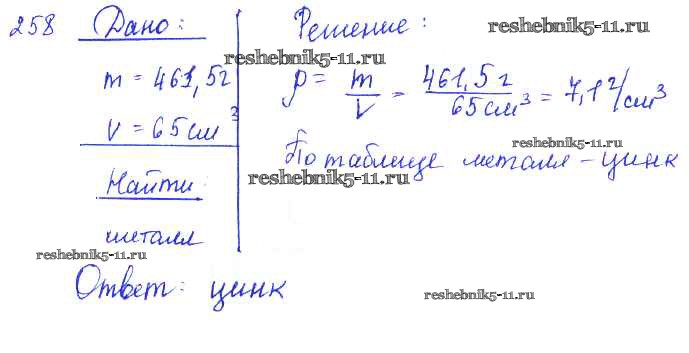 258 Дано:
m = 461,5г
V = 65 см³
Найти
металл
Решение:
ρ = m/V = 461,5 г/65 см³ = 7,1 г/см³
По таблице металл - цинк
Ответ: цинк
reshebnik5-11.ru
reshebnik5-11.ru
reshebnik5-11.ru
reshebnik5-11.ru
reshebnik5-11.ru
reshebnik5-11.ru